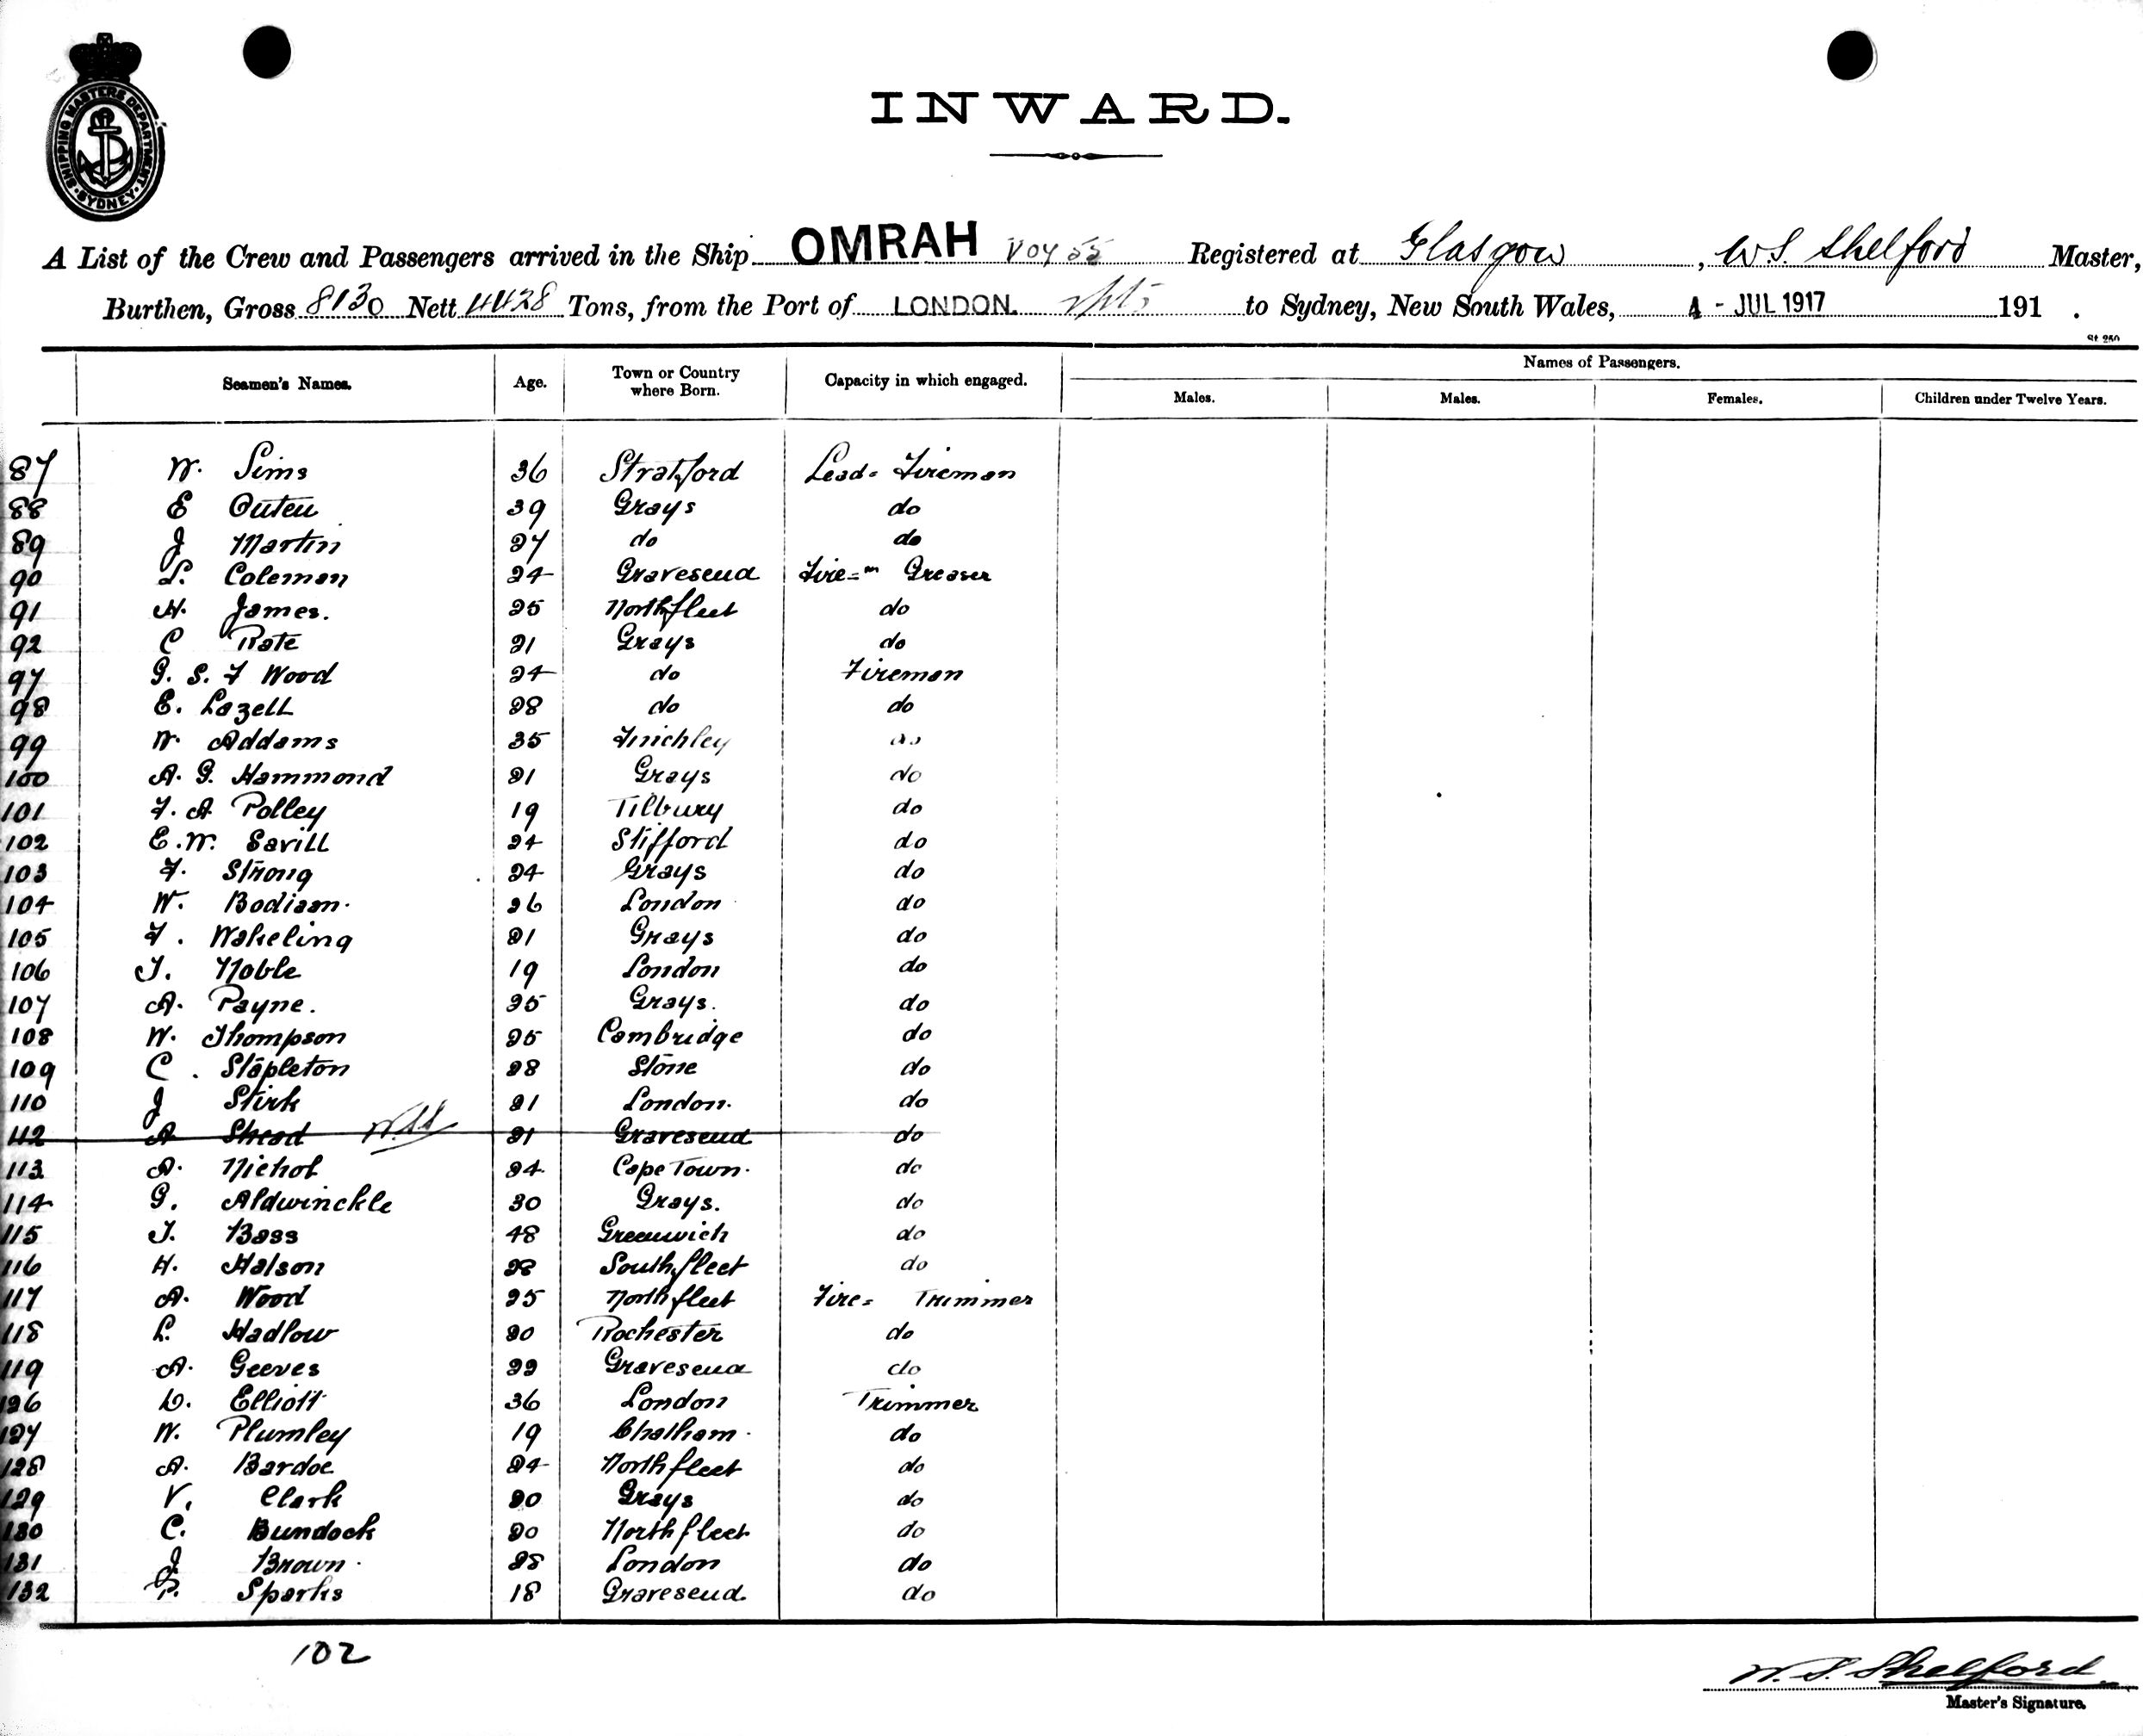 SHIPPING MASTERS DEPARTMENT
SYDNEY
INWARD.
A List of the Crew and Passengers arrived in the Ship OMRAH Voy 55 Registered at Glasgow, W.S. Shelford Master,
Burthen, Gross 8130 Nett 4428 Tons, from the Port of LONDON. to Sydney, New South Wales, 4 - JUL 1917 191 .
St. 250
Seamen's Names. Age. Town or Country where Born. Capacity in which engaged. Names of Passengers.
Males. Males. Females. Children under Twelve Years.
87 W. Sims 36 Stratford Lead= Fireman
88 E Outen 39 Grays do
89 J Martin 27 do do
90 L. Coleman 24 Gravesend Fire=m Greaser
91 H. James. 25 Northfleet do
92 C Rate 21 Grays do
97 G. S. F Wood 24 do Fireman
98 E. Lazell 28 do do
99 W. Addams 35 Finchley do
100 A. G. Hammond 21 Grays do
101 F. A Polley 19 Tilbury do
102 E. W. Savill 24 Stifford do
103 F. Strong 24 Grays do
104 W. Bodiam. 26 London do
105 F. Wakeling 21 Grays do
106 T. Noble 19 London do
107 A. Payne. 25 Grays. do
108 W. Thompson 25 Cambridge do
109 C. Stapleton 28 Stone do
110 J Stirk 21 London. do
112 A Shead 21 Gravesend do
113 A. Nichol 24 Cape Town. do
114 G. Aldwinckle 30 Grays. do
115 T. Bass 48 Greenwich do
116 H. Halson 28 Southfleet do
117 A. Wood 25 Northfleet Fire= Trimmer
118 L. Hadlow 20 Rochester do
119 A. Geeves 22 Gravesend do
126 D. Elliott 36 London Trimmer
127 W. Plumley 19 Chatham. do
128 A. Bardoe 24 Northfleet do
129 V. Clark 20 Grays do
130 C. Bundock 20 Northfleet do
131 J Brown. 28 London do
132 P. Sparks 18 Gravesend. do
102
W. S. Shelford
Master's Signature.